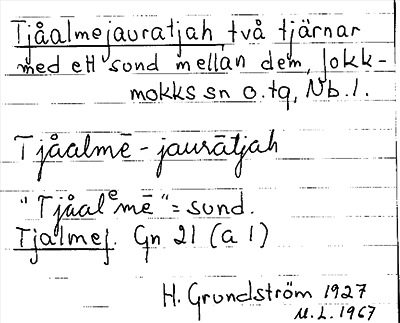 Tjåalmejauratjah två tjärnar
med ett sund mellan dem, Jokk-
mokks sn o. tg, Nb. l.
Tjåalmē - jaurātjah
"Tjåalᵉmē" = sund.
Tjalmej. Gn 21 (a 1)
H. Grundström 1927
M.L. 1967